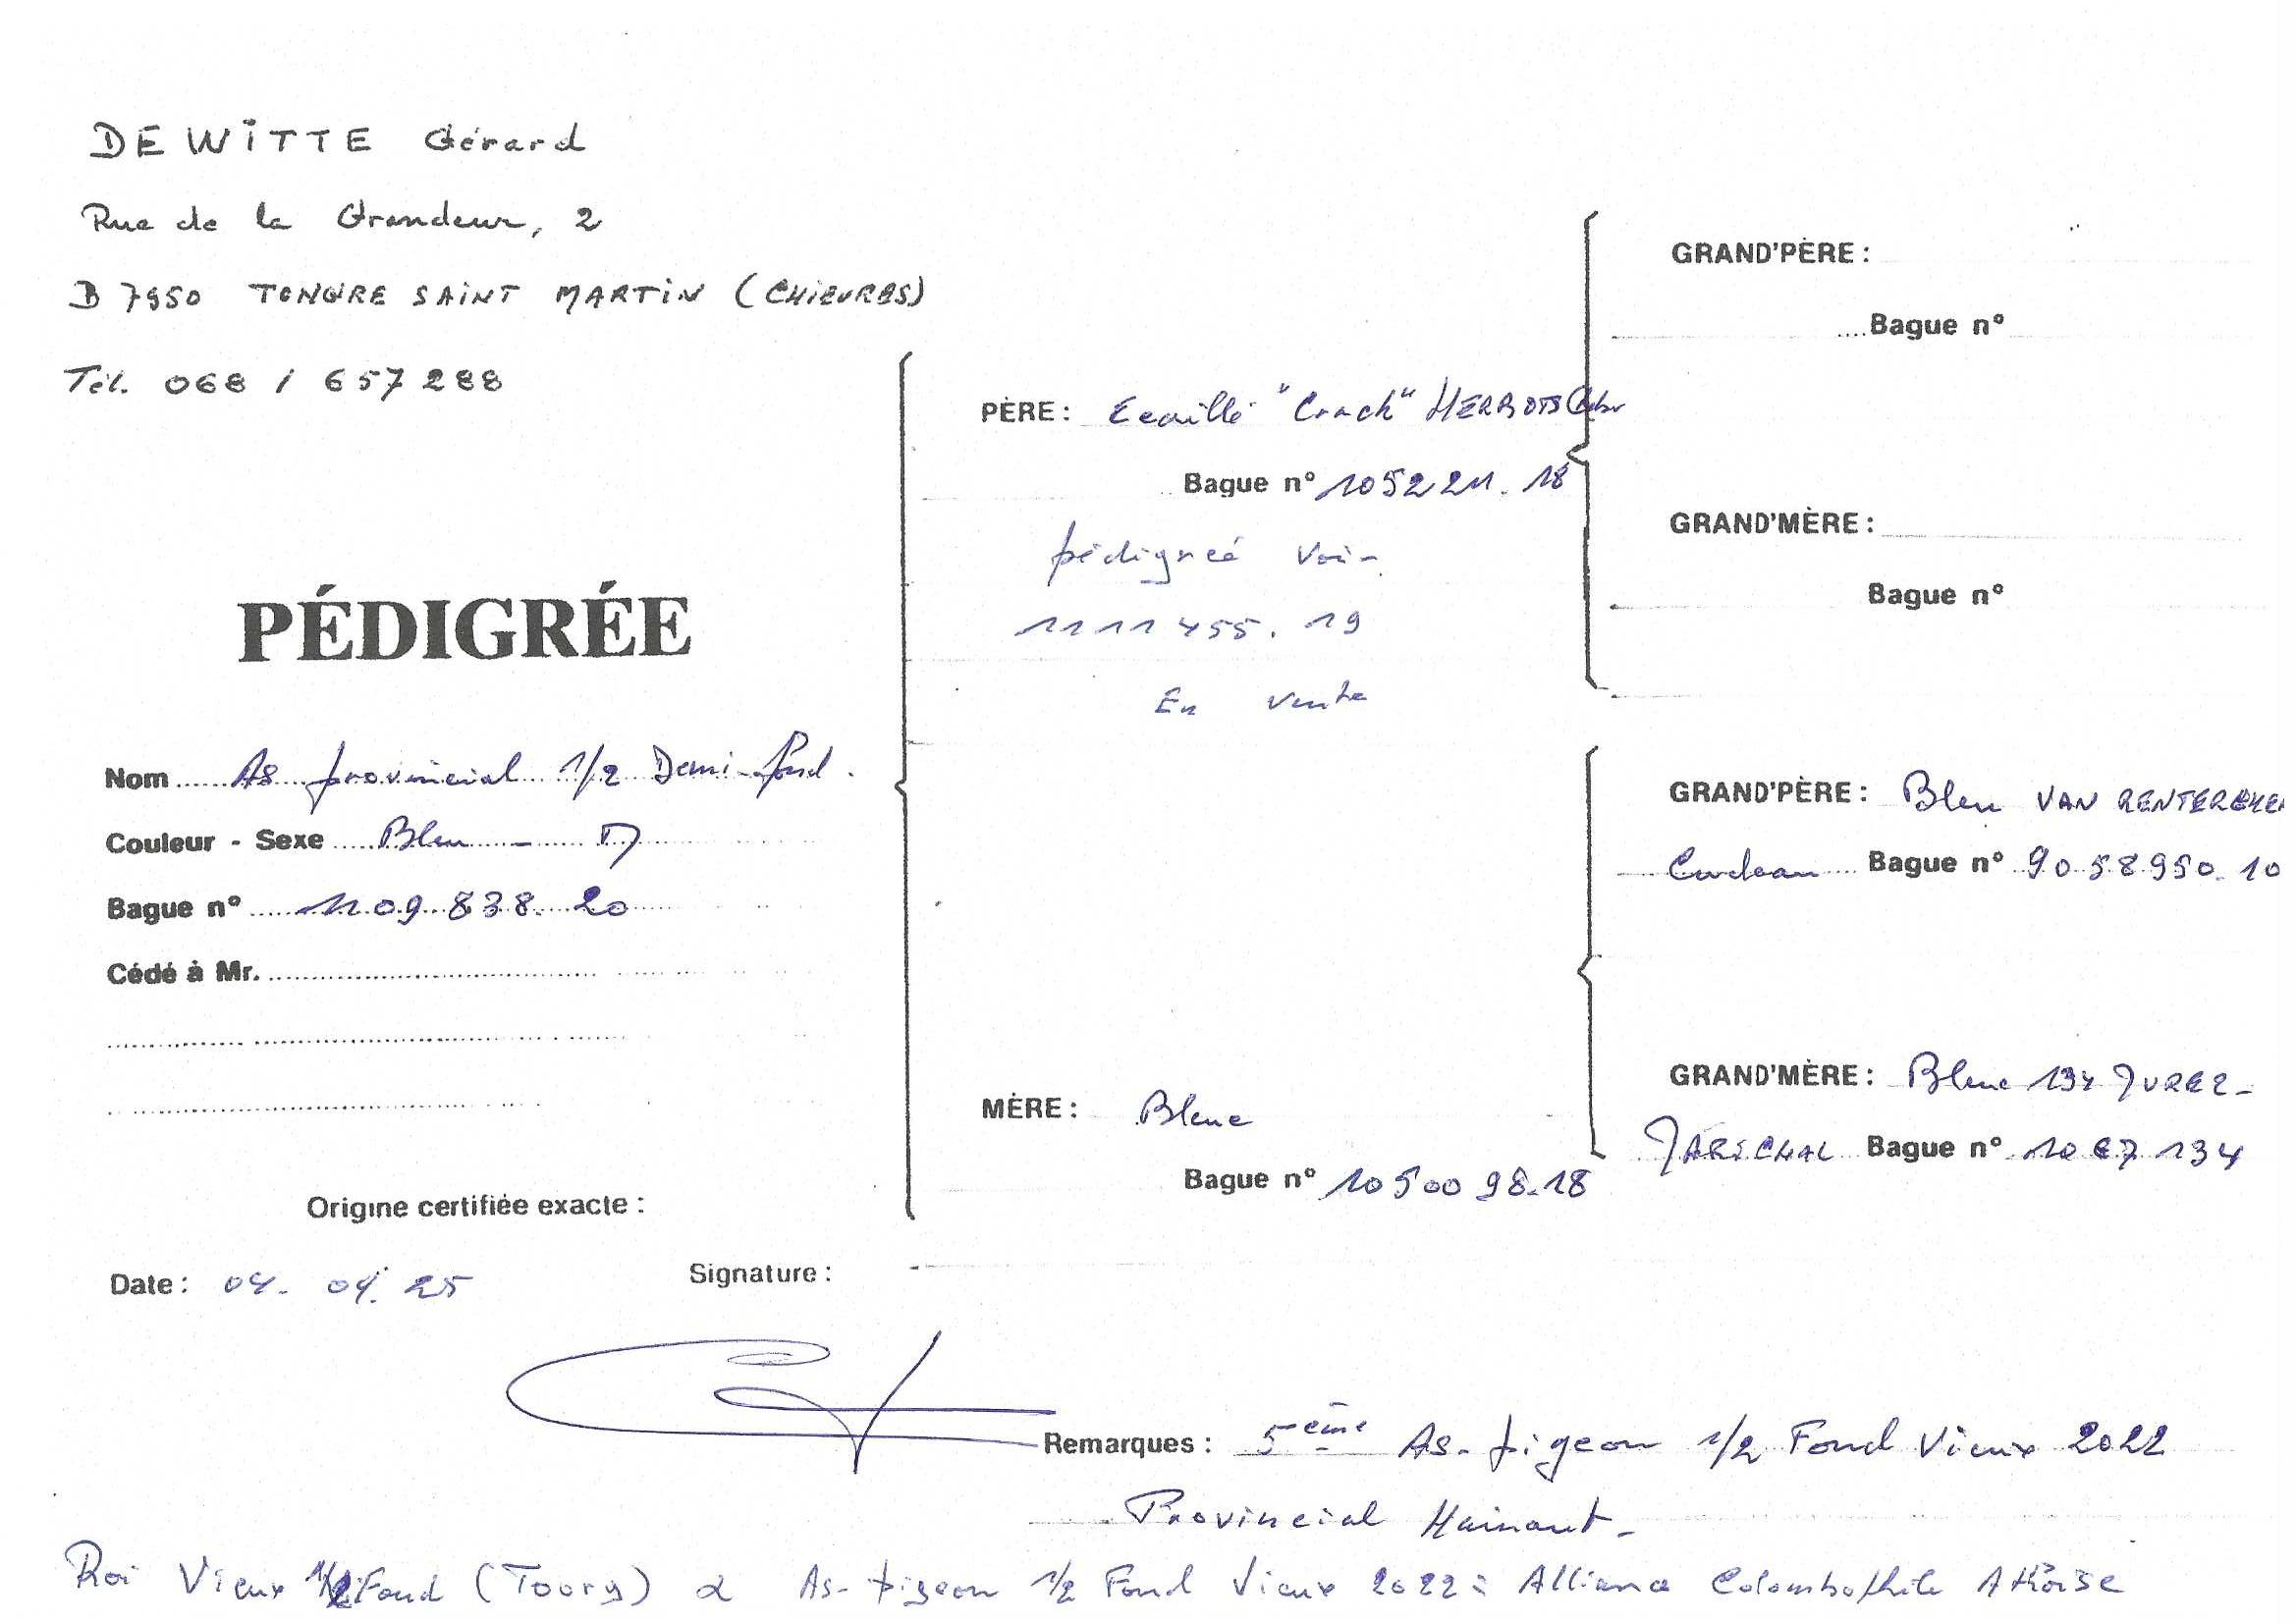 DEWITTE Gérard
Rue de la Grandeur, 2
B 7950 TONGRE SAINT MARTIN (CHIEVRES)
Tél. 068 / 657288
PÉDIGRÉE
Nom As provincial 1/2 Demi-fond.
Couleur - Sexe Bleu - M
Bague n° 1109.838.20
Cédé à Mr.
Origine certifiée exacte :
Date : 04.04.25
Signature :
PÈRE : Ecaillé "Crack" HERBOTS
Bague n° 1052211.18
pédigreé voir
1111455.19
En vente
MÈRE : Bleue
Bague n° 1050098.18
GRAND'PÈRE :
Bague n°
GRAND'MÈRE :
Bague n°
GRAND'PÈRE : Bleu VAN
Bague n° 9058950.10
GRAND'MÈRE : Bleue 134
MARICHAL Bague n° 1067134
Remarques : 5ème As-pigeon 1/2 Fond Vieux 2022
Provincial Hainaut-
Roi Vieux 1/2 Fond (Toury) As-pigeon 1/2 Fond Vieux 2022 : Alliance Colombophile Athoise